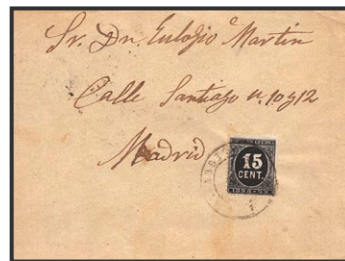 Sr. Dn. Eulogio Martin
Calle Santiago n. 10 y 12
Madrid
15
CENT.